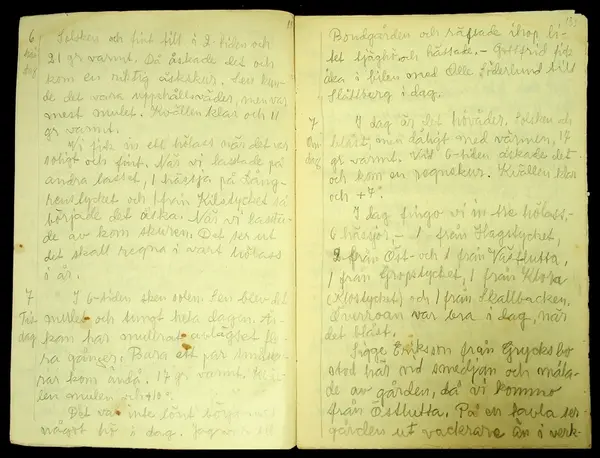 6 Solsken och fint till 2-tiden och
mån- 21 gr varmt. Då åskade det och
dag kom en riktig åskskur. Sen kun-
de det vara uppehållsväder, men var
mest mulet. Kvällen klar och 11
gr varmt.
Vi fick in ett hölass när det var
soligt och fint. När vi lastade på
andra lasset, 1 hässja på Lång-
renslycket och 1 från Kilslycket så
började det åska. När vi lastade
de av kom skuren. Det ser ut
det skall regna i vart hölass
i år.
7 I 6-tiden sken solen. Sen blev det
Tis- mulet och tungt hela dagen. Ås-
dag kan har mullrat avlägset fle-
ra gånger. Bara ett par
kom ändå. 17 gr varmt. Kväl-
len mulen och +10°.
Det var inte lönt börja med
något hö i dag.
133
Bondgården och räfsade ihop li-
tet och hässade. - Gottfrid fick
åka i bilen med Olle Söderlund till
Slättberg i dag.
I dag är det höväder. Solsken och
blåst, men dåligt med värmen, 17
dag gr varmt. Vid 6-tiden åskade det
och kom en regnskur. Kvällen klar
och +7°.
I dag fingo vi in tre hölass,-
6 hässjor, - 1 från Hagslycket,
2 från Öst- och 1 från Västhutta,
1 från Gropslycket, 1 från Klosa
(Kloslycket) och 1 från Skallbacken.
Överroan var bra i dag, när
det blåst.
Sigge Erikson från Grycksbo
stod här vid smedjan och måla-
de av gården, då vi kommo
från Östhutta. På en tavla ser
gården ut vackrare än i verk-